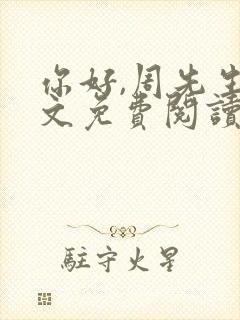 你好,周先生
文免費閱讀
駐守火星